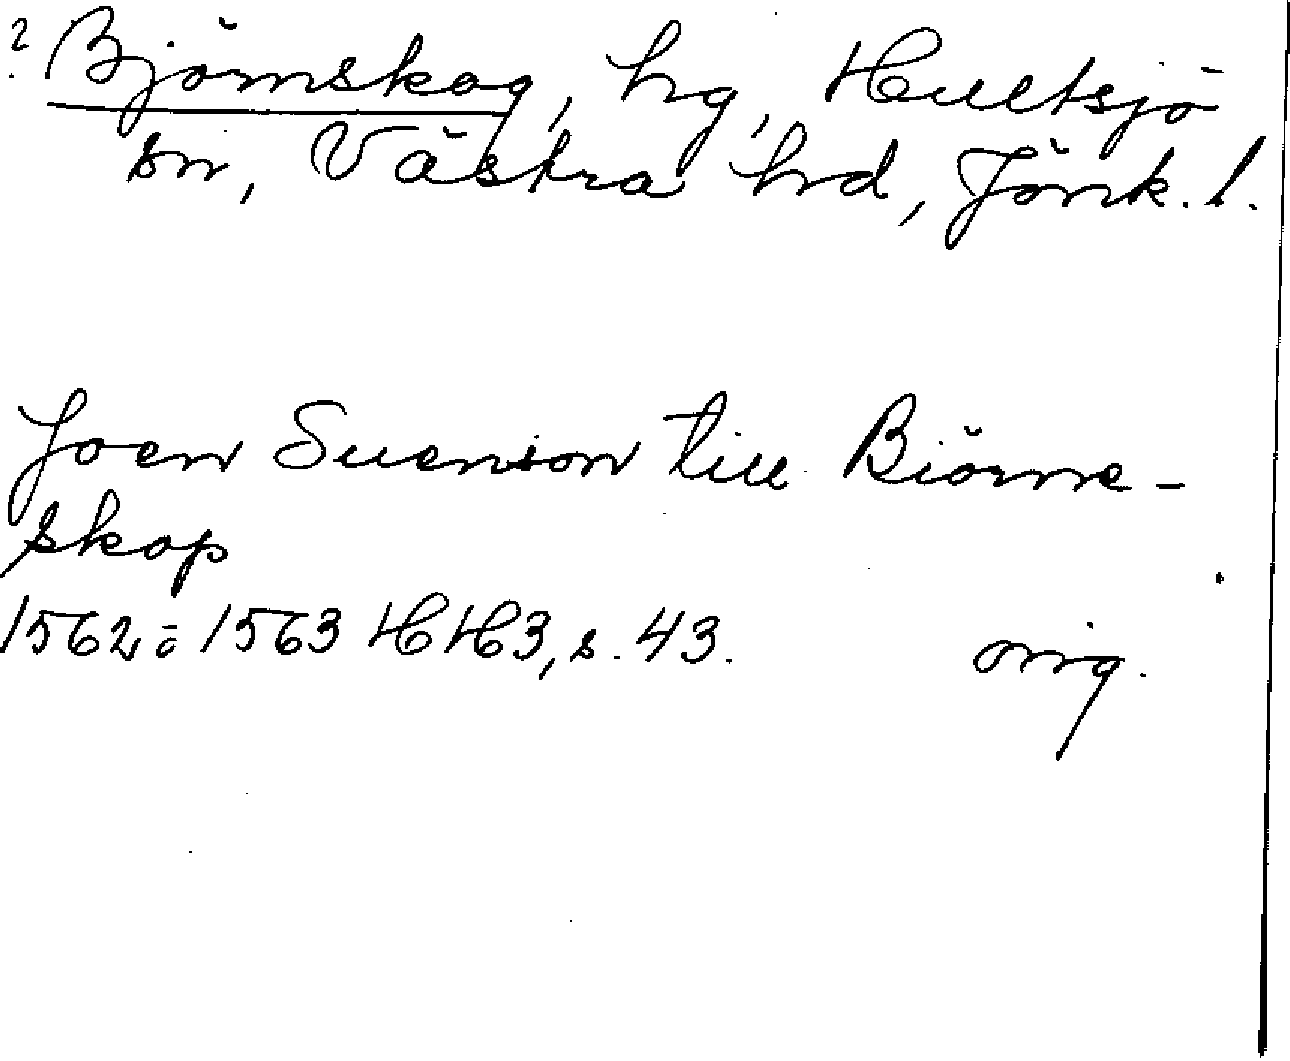 ? Björnskog, hg, Hultsjö
sn, Västra hd, Jönk. l.
Joen Suenson till Biörne-
skop
1562 ö 1563 HH3, s. 43. orig.